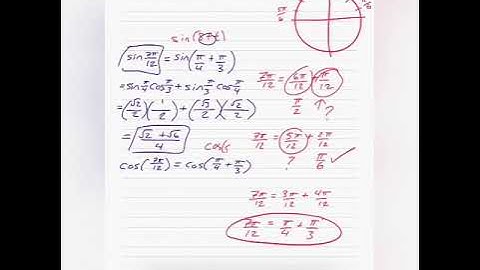 sin(s+t)
sin 7π/12 = sin(π/4 + π/3)
= sin π/4 cos π/3 + sin π/3 cos π/4
= (√2/2)(1/2) + (√3/2)(√2/2)
= (√2 + √6)/4
cos(
cos(7π/12) = cos(π/4 + π/3)
π/6
7π/12 = 6π/12 + π/12
π/2 ↑ ?
7π/12 = 5π/12 + 2π/12
? π/6 ✓
7π/12 = 3π/12 + 4π/12
7π/12 = π/4 + π/3